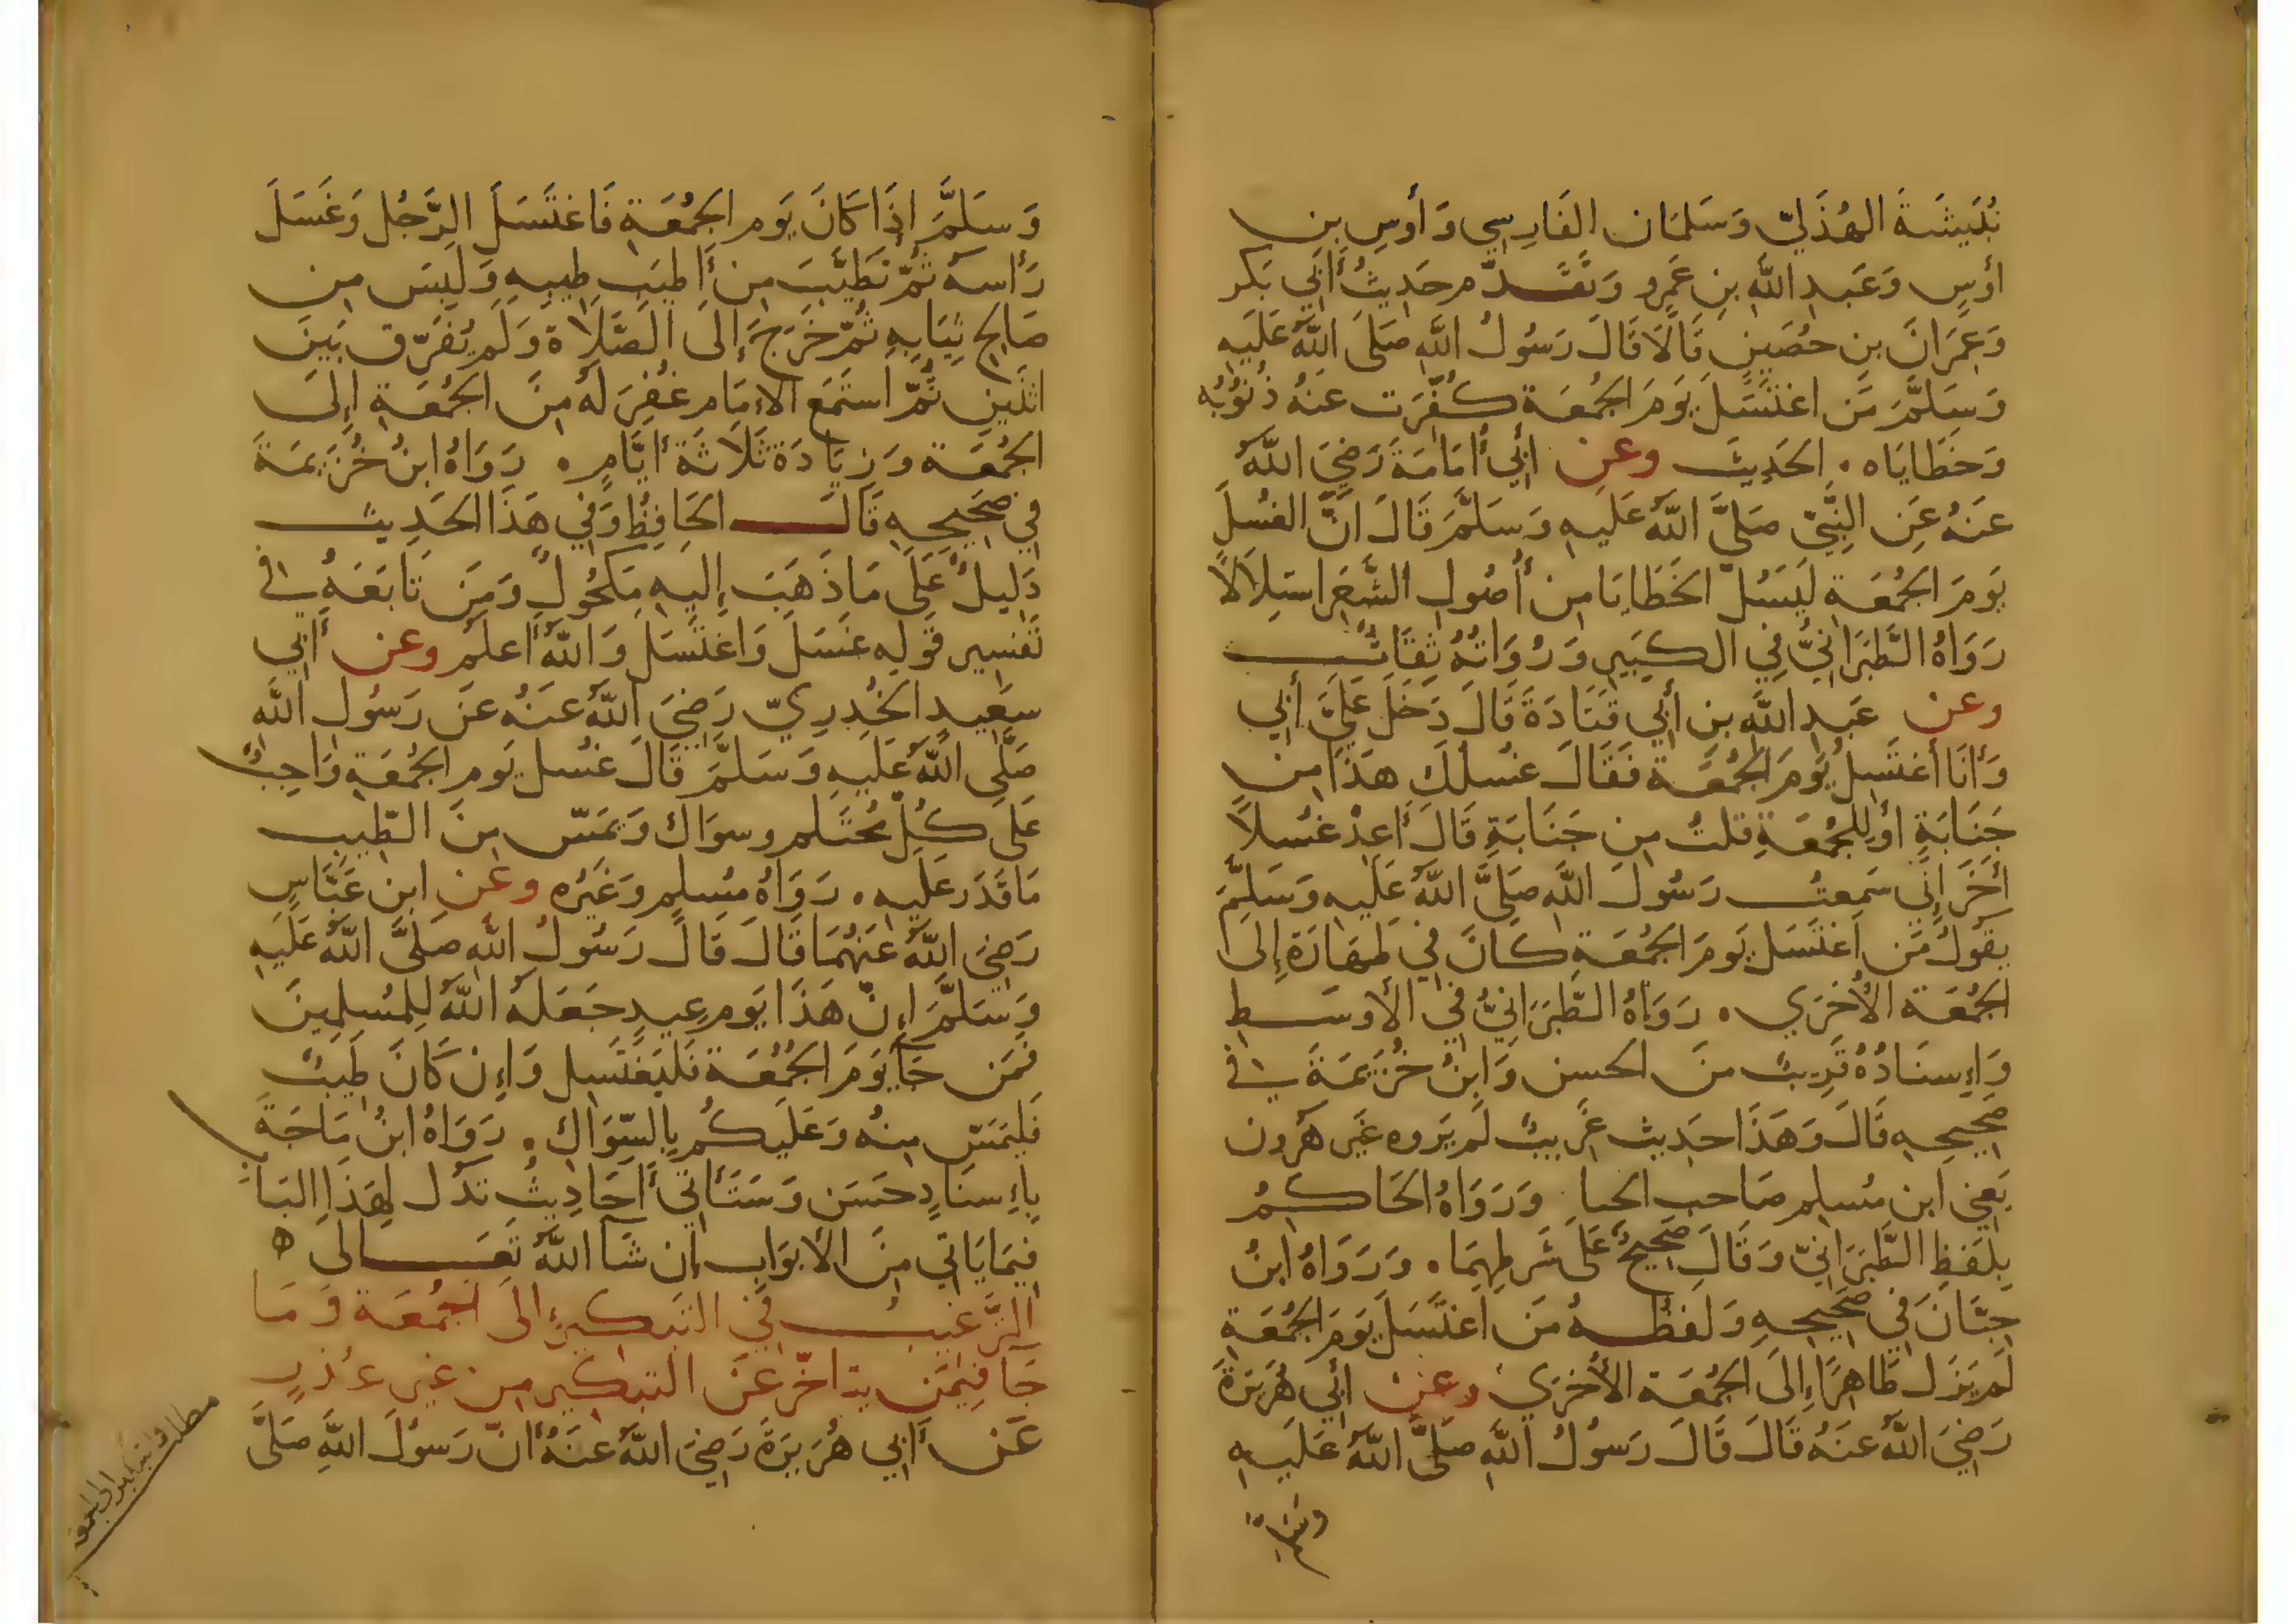 نُبَيشَةَ الهُذَلِيّ وَسَلمَان الفَارِسِي وَأوسِ بنِ
أوسٍ وَعَبدِ اللَّهِ بنِ عَمرٍو وَتَقَدَّم حَدِيثُ أَبِي بَكر
وَعِمرَانَ بنِ حُصَينٍ قَالَا قَالَ رَسُولُ اللَّهِ صَلَى اللَّهُ عَلَيهِ
وَسَلَّمَ مَن اغتَسَلَ يَومَ الجُمُعَة كُفِّرَت عَنهُ ذُنُوبُه
وَخَطَايَاه . الحَدِيث وعن أَبِي أُمَامَةَ رَضِيَ اللَّهُ
عَنهُ عَنِ النَّبِيّ صَلَّى اللَّهُ عَلَيهِ وَسَلَّمَ قَالَ انَّ الغُسلَ
يَومَ الجُمُعَةِ لَيَسُلُّ الخَطَايَا مِن أُصُولِ الشَّعَرِ استِلَالًا
رَوَاهُ الطَّبَرَانِيُّ فِي الكَبِيرِ وَرُوَاتُهُ ثِقَاتٌ
وعن عَبدِ اللَّهِ بن أَبِي قَتَادَةَ قَالَ دَخَلَ عَلَيَّ أَبِي
وَأَنَا أغتَسِلُ يَومَ الجُمُعَة فَقَالَ غُسلُكَ هَذَا مِن
جَنَابَةٍ اَو لِلجُمُعَةِ قلتُ مِن جَنَابَةٍ قَالَ أَعِدْ غُسلاً
أخَرَ إِنِّي سَمِعتُ رَسُولَ اللَّهِ صَلَّى اللَّهُ عَلَيهِ وَسَلَّمَ
يَقُولُ مَن اغتَسَل يَومَ الجُمُعَةِ كَانَ فِي طَهَارَةٍ إِلَى
الجُمُعَة الأُخرَي . رَوَاهُ الطَّبَرَانِيُّ فِي الأَوسَطِ
وَاِسنَادُهُ قَرِيبٌ مِنَ الحسن وَابنُ خُزَيمَةَ في
صَحِيحِهِ قَالَ وَهَذَا حَدِيث غَرِيبٌ لَم يَروِه غَيرُ هَرُون
يَعنِي ابن مُسلِم صَاحب الحِنا وَرَوَاهُ الحَاكِمُ
بِلَفظِ الطَّبَرَانِيّ وَقَالَ صَحِيحٌ عَلَى شَرطِهِمَا . وَرَوَاهُ ابنُ
حِبَّانَ فِي صَحِيحِهِ وَلَفظُهُ مَن اغتَسَلَ يَومَ الجُمُعَةِ
لَم يَزَل طَاهِرًا اِلَى الجُمُعَة الأُخرَي وعن أَبِي هُرَيرَةَ
رَضِيَ اللَّهُ عَنهُ قَالَ قَالَ رَسُولُ اللَّهِ صَلَّى اللَّهُ عَلَيهِ
وسلم
وَسَلَّمَ إِذَا كَانَ يَوم الجُمُعَةِ فَاغتَسَلَ الرَّجُل وَغَسَلَ
رَأسَه ثُمَّ تَطَيَّبَ مِن أَطيَبِ طِيبِهِ وَلَبِسَ مِن
صَالِحِ ثِيَابِهِ ثُمَّ خَرَجَ إِلَى الصَّلَاة وَلَم يُفَرِّق بَينَ
اثنَينِ ثُمَّ استَمَعَ الاِمَام غُفِرَ لَهُ مِنَ الجُمُعَةِ إِلَى
الجُمُعَة وَزِيَادَة ثَلَاثَة أَيَّامٍ . رَوَاهُ ابنُ خُزَيمَةَ
فِي صَحِيحِهِ قَالَ الحَافِظُ وَفِي هَذَا الحَدِيث
دَلِيلٌ عَلَى مَا ذَهَبَ إِلَيهِ مَكحُولٌ وَمَن تَابَعَهُ في
تَفسِير قَولِه غَسَلَ وَاغتَسَلَ وَاللَّهُ أَعلَم وعن أَبِي
سَعِيدٍ الخُدرِيّ رَضِيَ اللَّهُ عَنهُ عَن رَسُولِ اللَّهِ
صَلَّى اللَّهُ عَلَيهِ وَسَلَّمَ قَالَ غُسل يَوم الجُمُعَةِ وَاجِبٌ
عَلَى كُلِّ مُحتَلم وسِوَاك وَيَمَسّ مِنَ الطِّيبِ
مَا قَدَر عَلَيهِ . رَوَاهُ مُسلِم وَغَيرُه وعن ابن عَبَّاسٍ
رَضِيَ اللَّهُ عَنهُمَا قَالَ قَالَ رَسُولُ اللَّهِ صَلَّى اللَّهُ عَلَيهِ
وَسَلَّمَ اِنَّ هَذَا يَوم عِيدٍ جَعَلَهُ اللَّهُ لِلمُسلِمِينَ
فَمَن جَآ يَومَ الجُمُعَة فَليَغتَسِل وَاِن كَانَ طِيبٌ
فَليَمَسّ مِنهُ وَعَلَيكُم بِالسِّوَاكِ . رَوَاهُ ابنُ مَاجَة
بِاِسنَادٍ حَسَن وَسَتَأتِي أَحَادِيثُ تَدُل لِهَذَا البَاب
فِيمَا يَاتِي مِنَ الأَبوَابِ إن شَآ اللَّهُ تَعَالى ه
التَّرغِيبُ فِي التَبكِيرِ الَى الجُمُعَة وَمَا
جَآ فِيمَن يتَاخَّر عَن التبكِيرِ مِن غَيرِ عُذرٍ
عَن أَبِي هُرَيرَةَ رَضِيَ اللَّهُ عَنهُ أَنَّ رَسُولَ اللَّهِ صَلَّى
مطلب التبكير الى الجمعة